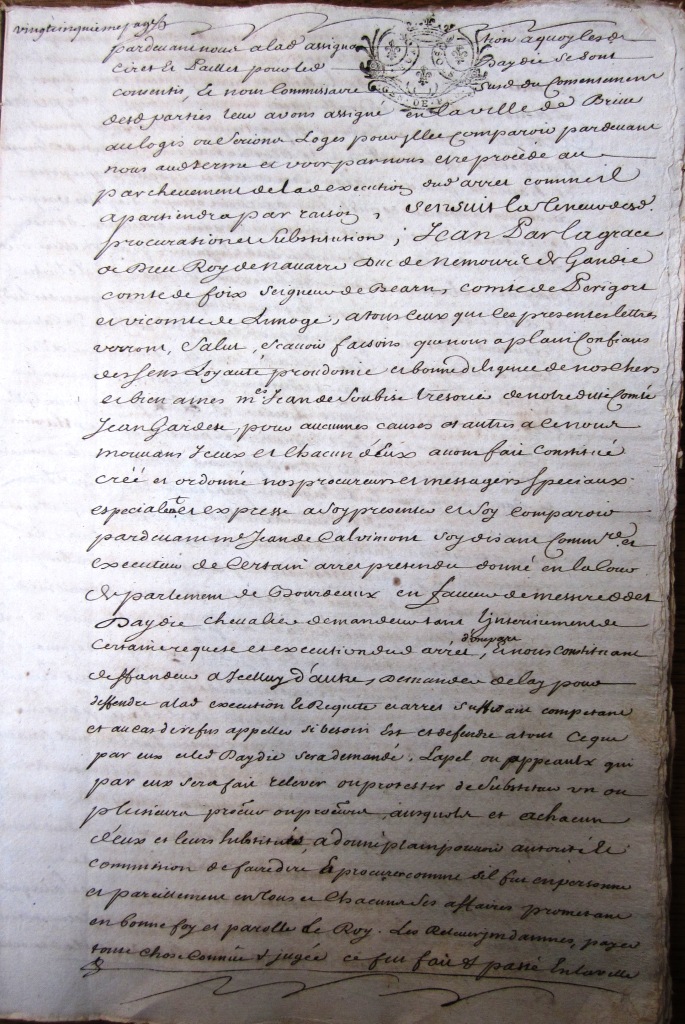 vingtcinquieme page
pardevant nous a lad assigna tion a quoy lesd
Ciret & Paillet pour led Daydie se sont
consentis, Et nous Commissaire Susd du Consentement
desd parties leur avons assigné en la ville de Brive
au logis ou Serions Loges pour Illec comparoir pardevant
nous aud terme et voir par nous etre procédé au
parchevement de lad execution dud arret comme il
apartiendra par raison, sensuit la teneur desd.
procuration et Substitution; Jean Par la grace
de Dieu Roy de navarre Duc de nemours & de Gandie
comte de foix Seigneur de Bearn, comte de Perigort
et vicomte de Limoge, a tous ceux que ces presentes lettres
verront, Salut, scavoir faisons que nous a plain Confians
des sens Loyauté proudomie et bonne deligence de nos chers
et bien amés mes. Jean de Soubise tresorier de notre dite Comté
Jean Gardete, pour aucunnes causes et autres a ce nous
mouvans Iceux et Chacun d'Eux avons fait Constitué
créé et ordonné nos procureurs et messagers speciaux
especialemt et expresse a Soy presenter et Soy comparoir
pardevant me Jean de Calvimont Soy disant Commre. et
executeur de Certain arret pretendu donné en la Cour
de parlement de Bourdeaux en faveur de messire odet
Daydie chevalier demandeur tant l'interinement de
Certaine requete et execution dud arrêt, d'une part et nous Constituant
deffandeur a Icelluy d'autre, demander delay pour
deffendre a lad execution & Requete et arret Suffisant competant
et au cas de refus appeller si besoin Est et defendre a tout Ce que
par eux et led Daydie sera demandé. Lapel ou appeaulx qui
par eux sera fait relever ou protester de Substituer un ou
plusieurs procur ou procurs, ausquels et a chacun
d'Eux et leurs Substitués a donné plain pouvoir autorité &
commission de faire dire & procurer comme s'il fut en personne
et pareillement en tous et Chacuns Ses affaires prometant
en bonne foy et parolle de Roy. Les Relever jndamnes, payer
toute chose Connüe & jugée ce fut fait & passé En la ville